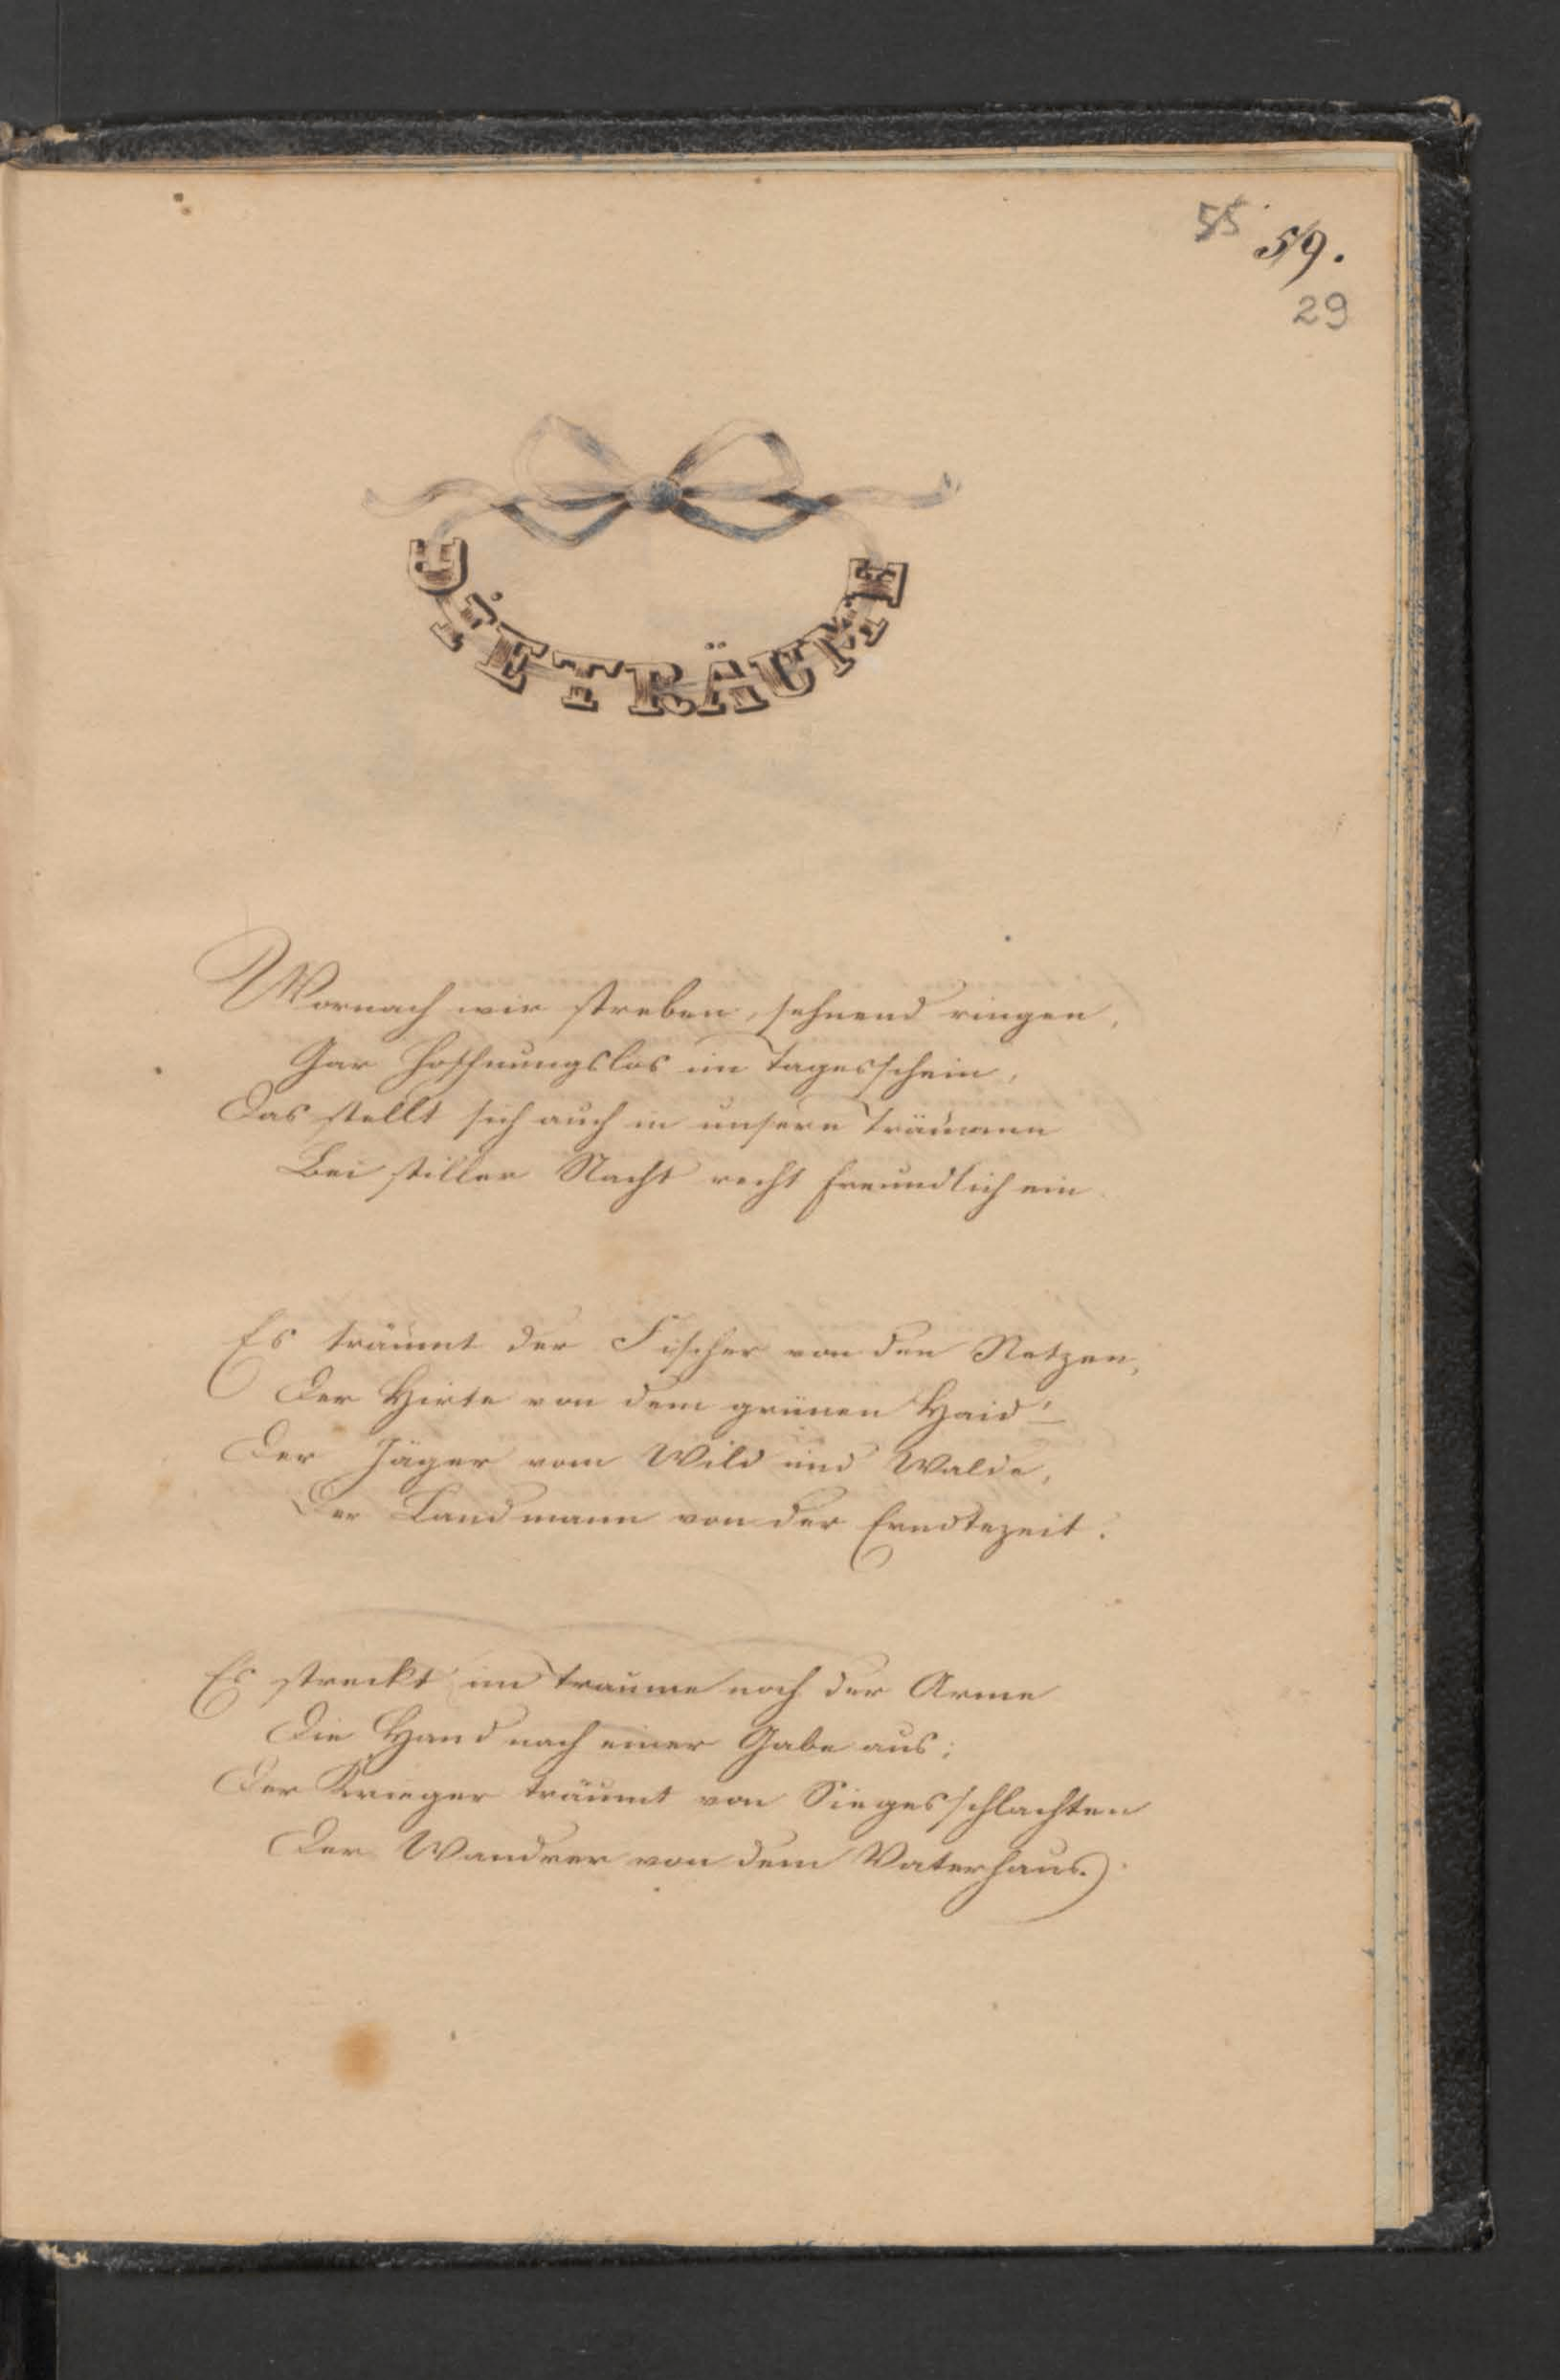 55
59.
29
Wornach wir streben, sehnend ringen,
Gar hoffnungslos im Tagesschein,
Das stellt sich auch in unsern Träumen
Bei stiller Nacht recht freundlich ein
Es träumt der Fischer von den Netzen,
Der Hirte von dem grünen Haid'
Der Jäger vom Wild und Walde,
Der Landmann von der Erndtezeit.
Es streckt im Traume noch der Arme
Die Hand nach einer Gabe aus;
Der Krieger träumt von Siegesschlachten
Der Wandrer von dem Vaterhaus.